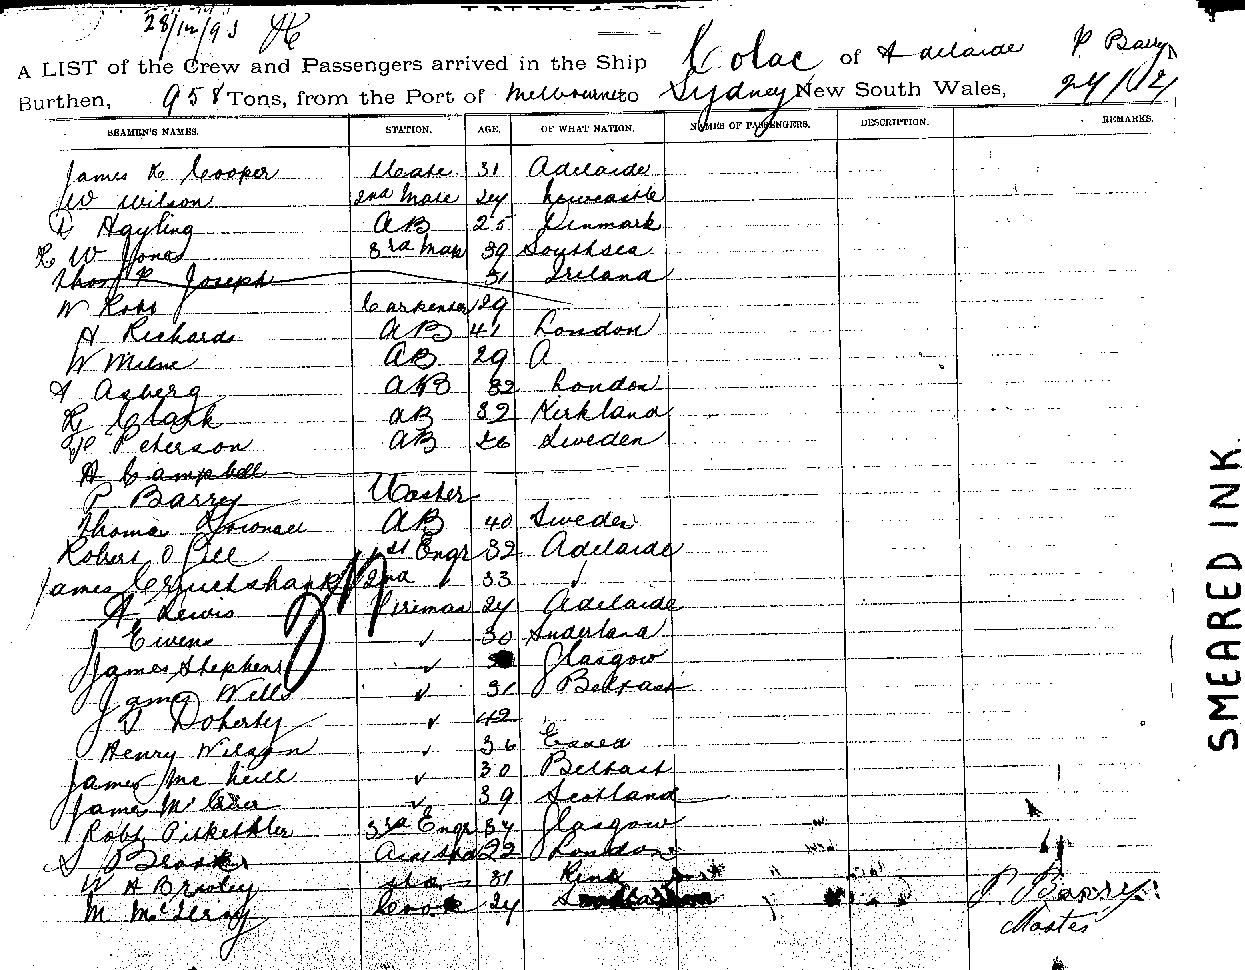 28/12/93
A LIST of the Crew and Passengers arrived in the Ship Colac of Adelaide P Barry
Burthen, 958 Tons, from the Port of Melbourne to Sydney New South Wales, 24/12/
SEAMEN'S NAMES. STATION. AGE. OF WHAT NATION. NAMES OF PASSENGERS. DESCRIPTION. REMARKS.
James Cooper Mate 31 Adelaide
W Wilson 2nd Mate 24 Newcastle
Hayling AB 25 Denmark
W Jones 3rd Mate 39 Southsea
Thos Joseph 31 Ireland
W Ross Carpenter 29
A Richards AB 41 London
W Milne AB 29 A
Asberg AB 32 London
Clark AB 32 Kirkland
P Peterson AB 26 Sweden
A Campbell
P Barrey Master
Thomas AB 40 Sweden
Robert O Gill 1st Engr 32 Adelaide
James Cruickshank 2nd 33 ✓
A Lewis Fireman 24 Adelaide
J Ewens ✓ 30 Sunderland
James Stephens ✓ Glasgow
James Wells ✓ 31 Belfast
Doherty ✓ 42
Henry Wilson ✓ 36 Essex
James Mc Neill ✓ 30 Belfast
James Mc ✓ 39 Scotland
Robt 3rd Engr 34 Glasgow
S 22 London
W A Braley 31
M Cook 24
P. Barrey
Master
SMEARED INK.